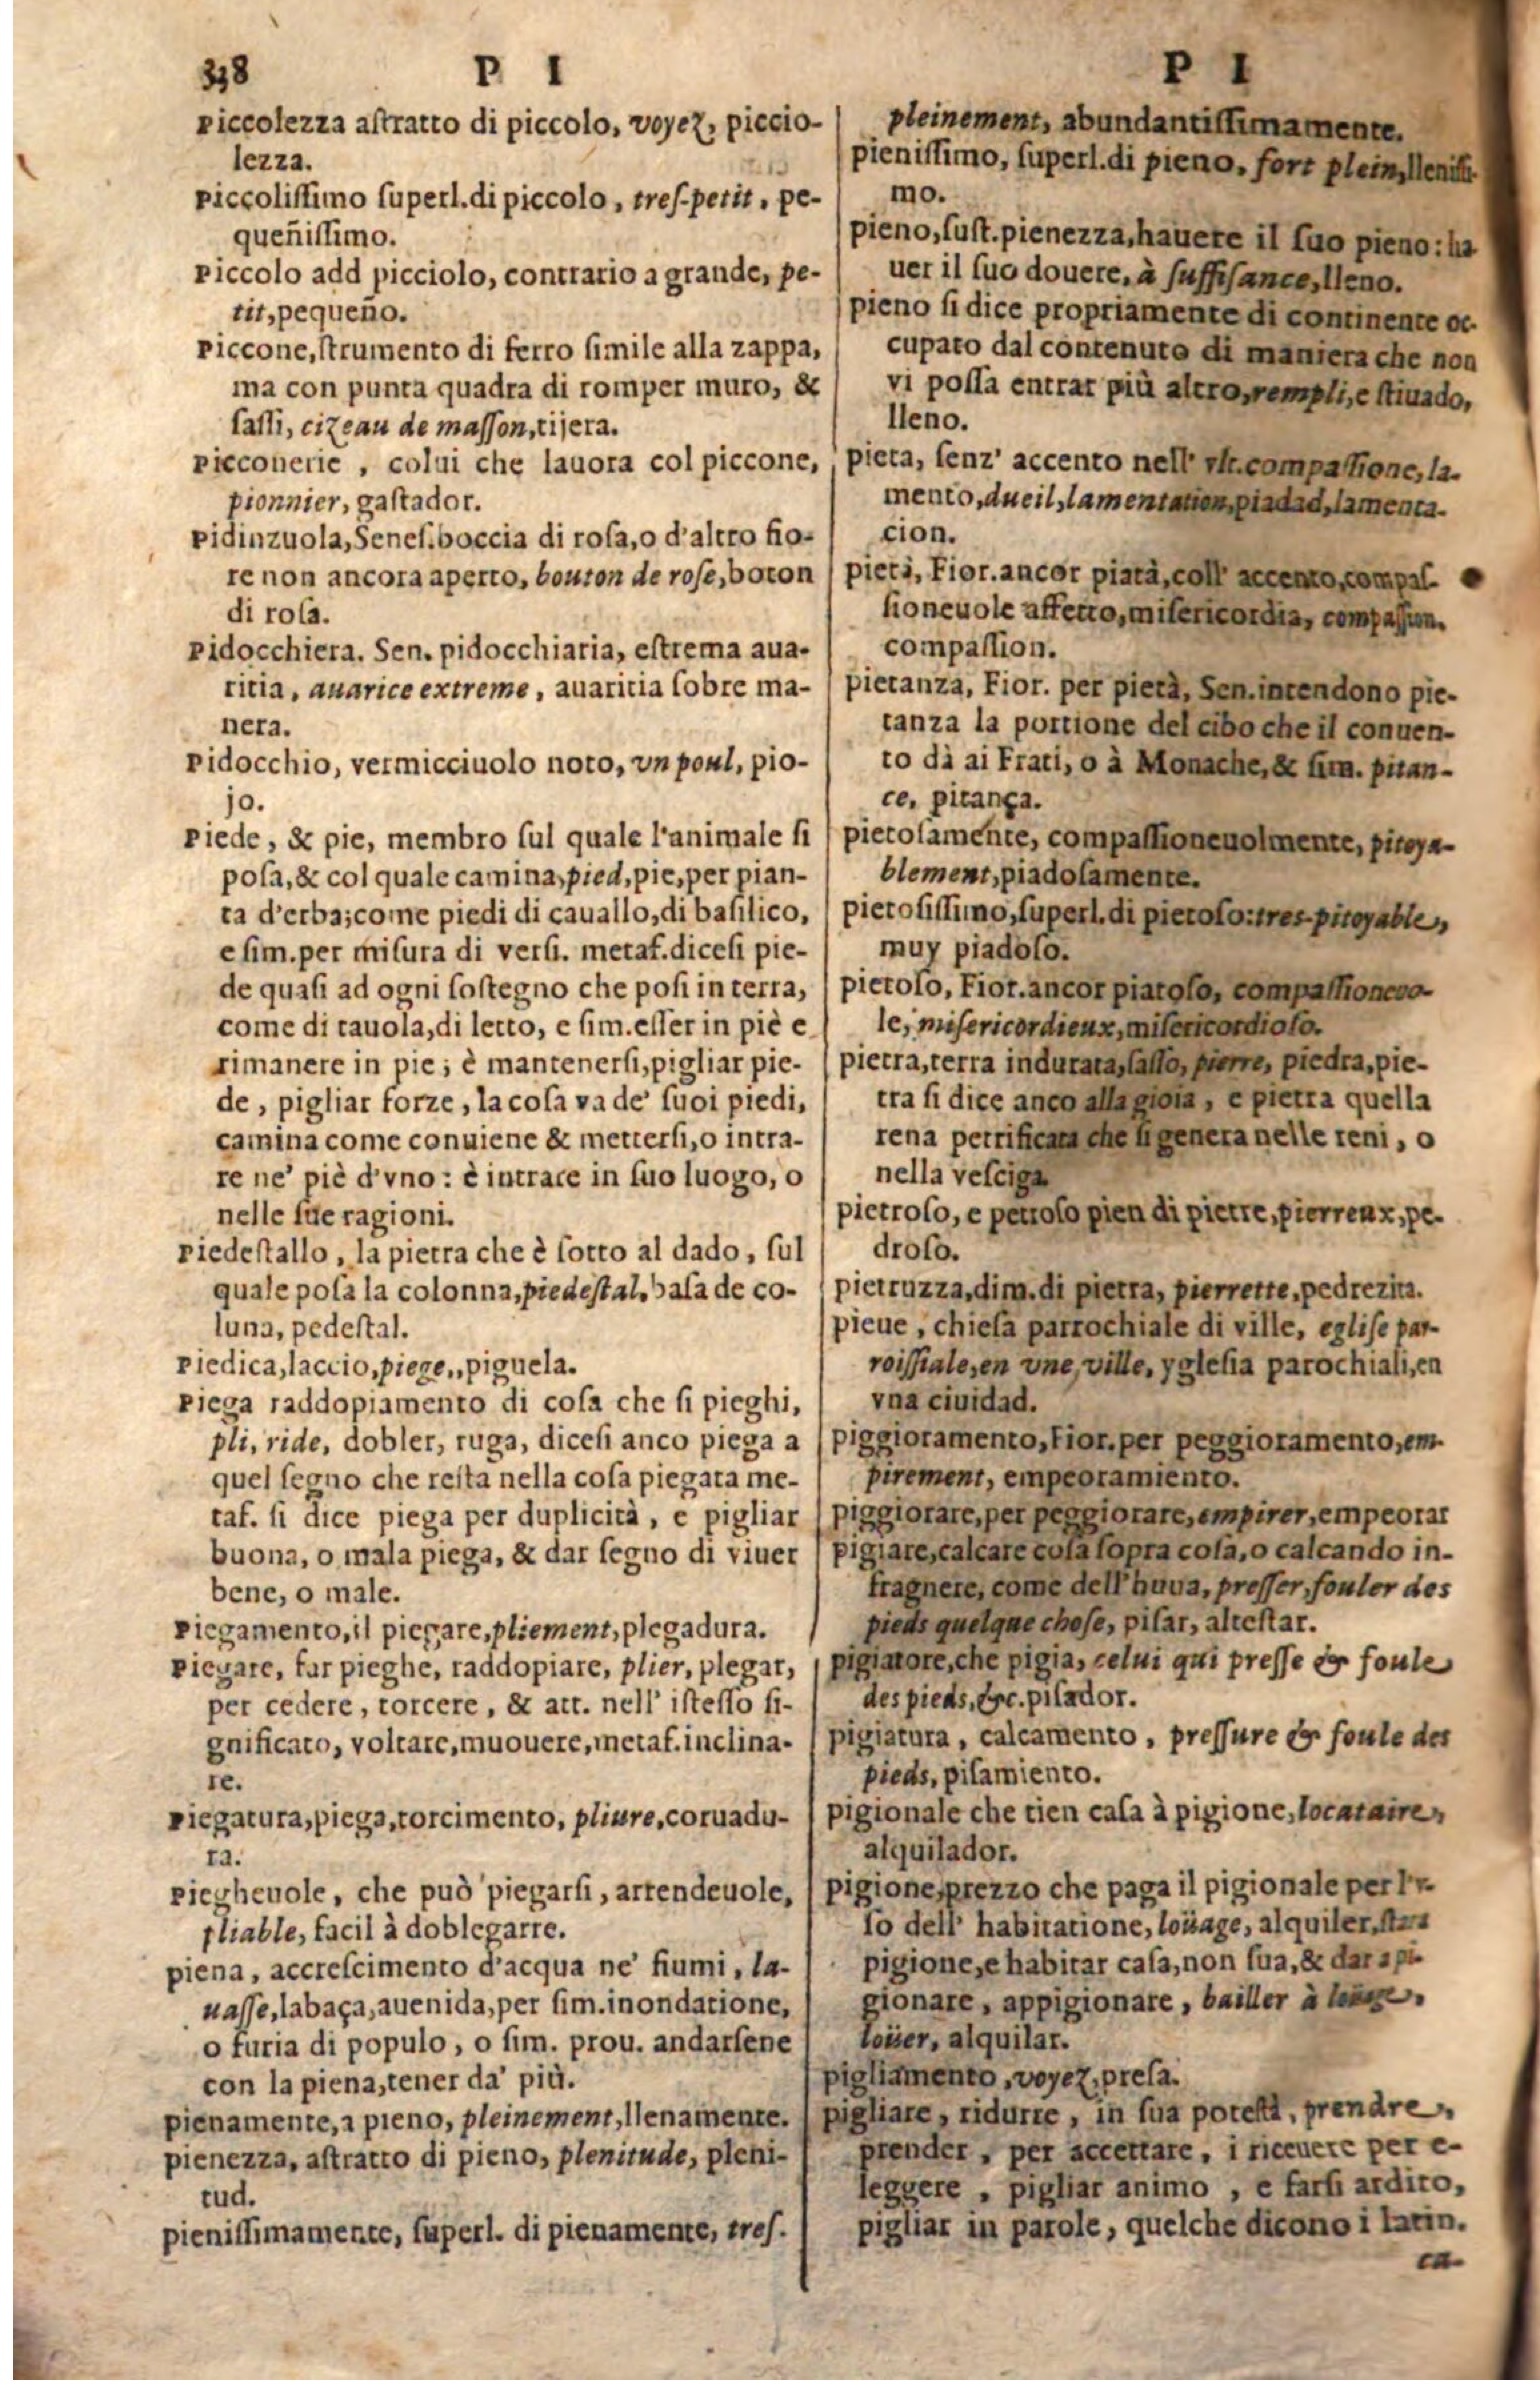 338 P I
Piccolezza aſtratto di piccolo, voyez, piccio-
lezza.
Piccoliſſimo ſuperl.di piccolo, treſ-petit, pe-
queñiſſimo.
Piccolo add picciolo, contrario a grande, pe-
tit,pequeño.
Piccone,ſtrumento di ferro ſimile alla zappa,
ma con punta quadra di romper muro, &
ſaſſi, cizeau de maſſon,tijera.
Picconerie, colui che lauora col piccone,
pionnier, gaſtador.
Pidinzuola,Seneſ.boccia di roſa,o d'altro fio-
re non ancora aperto, bouton de roſe,boton
di roſa.
Pidocchiera. Sen. pidocchiaria, eſtrema aua-
ritia, auarice extreme, auaritia ſobre ma-
nera.
Pidocchio, vermicciuolo noto, vn poul, pio-
jo.
Piede, & pie, membro ſul quale l'animale ſi
poſa,& col quale camina,pied,pie,per pian-
ta d'erba;come piedi di cauallo,di baſilico,
e ſim.per miſura di verſi. metaf.diceſi pie-
de quaſi ad ogni ſoſtegno che poſi in terra,
come di tauola,di letto, e ſim.eſſer in piè e
rimanere in pie; è mantenerſi,pigliar pie-
de, pigliar forze, la coſa va de' ſuoi piedi,
camina come conuiene & metterſi,o intra-
re ne' piè d'vno: è intrare in ſuo luogo, o
nelle ſue ragioni.
Piedeſtallo, la pietra che è ſotto al dado, ſul
quale poſa la colonna,piedeſtal,baſa de co-
luna, pedeſtal.
Piedica,laccio,piege,,piguela.
Piega raddopiamento di coſa che ſi pieghi,
pli, ride, dobler, ruga, diceſi anco piega a
quel ſegno che reſta nella coſa piegata me-
taf. ſi dice piega per duplicità, e pigliar
buona, o mala piega, & dar ſegno di viuer
bene, o male.
Piegamento,il piegare,pliement,plegadura.
Piegare, far pieghe, raddopiare, plier, plegar,
per cedere, torcere, & att. nell' iſteſſo ſi-
gnificato, voltare,muouere,metaf.inclina-
re.
Piegatura,piega,torcimento, pliure,coruadu-
ra.
Piegheuole, che può piegarſi, arrendeuole,
pliable, facil à doblegarre.
piena, accreſcimento d'acqua ne' fiumi, la-
uaſſe,labaça,auenida,per ſim.inondatione,
o furia di populo, o ſim. prou. andarſene
con la piena,tener da' più.
pienamente,a pieno, pleinement,llenamente.
pienezza, aſtratto di pieno, plenitude, pleni-
tud.
pieniſſimamente, ſuperl. di pienamente, treſ.
P I
pleinement, abundantiſſimamente.
pieniſſimo, ſuperl.di pieno, fort plein,lleniſſi-
mo.
pieno,ſuſt.pienezza,hauere il ſuo pieno: ha
uer il ſuo douere, à ſuffiſance,lleno.
pieno ſi dice propriamente di continente oc-
cupato dal contenuto di maniera che non
vi poſſa entrar più altro,rempli,e ſtiuado,
lleno.
pieta, ſenz' accento nell' vlt.compaſſione,la-
mento,dueil,lamentation,piadad,lamenta-
cion.
pietà, Fior.ancor piatà,coll' accento,compaſ-
ſioneuole affetto,miſericordia, compaſſion,
compaſſion.
pietanza, Fior. per pietà, Sen.intendono pie-
tanza la portione del cibo che il conuen-
to dà ai Frati, o à Monache,& ſim. pitan-
ce, pitança.
pietoſamente, compaſſioneuolmente, pitoya-
blement,piadoſamente.
pietoſiſſimo,ſuperl.di pietoſo:tres-pitoyable,
muy piadoſo.
pietoſo, Fior.ancor piatoſo, compaſſioneuo-
le, miſericordieux,miſericordioſo.
pietra,terra indurata,ſaſſo, pierre, piedra,pie-
tra ſi dice anco alla gioia, e pietra quella
rena petrificata che ſi genera nelle reni, o
nella veſciga.
pietroſo, e petroſo pien di pietre,pierreux,pe-
droſo.
pietruzza,dim.di pietra, pierrette,pedrezita.
pieue, chieſa parrochiale di ville, egliſe par-
roiſſiale,en vne,ville, ygleſia parochiali,en
vna ciuidad.
piggioramento,Fior.per peggioramento,em-
pirement, empeoramiento.
piggiorare,per peggiorare,empirer,empeorar
pigiare,calcare coſa ſopra coſa,o calcando in-
fragnere, come dell'huua, preſſer,fouler des
pieds quelque choſe, piſar, alteſtar.
pigiatore,che pigia, celui qui preſſe & foule
des pieds,&c.piſador.
pigiatura, calcamento, preſſure & foule des
pieds, piſamiento.
pigionale che tien caſa à pigione,locataire,
alquilador.
pigione,prezzo che paga il pigionale per l'v-
ſo dell' habitatione, loüage, alquiler,ſtara
pigione,e habitar caſa,non ſua,& dar a pi-
gionare, appigionare, bailler à loüage,
loüer, alquilar.
pigliamento,voyez,preſa.
pigliare, ridurre, in ſua poteſtà, prendre,
prender, per accettare, i riceuere per e-
leggere, pigliar animo, e farſi ardito,
pigliar in parole, quelche dicono i latin.
ca-